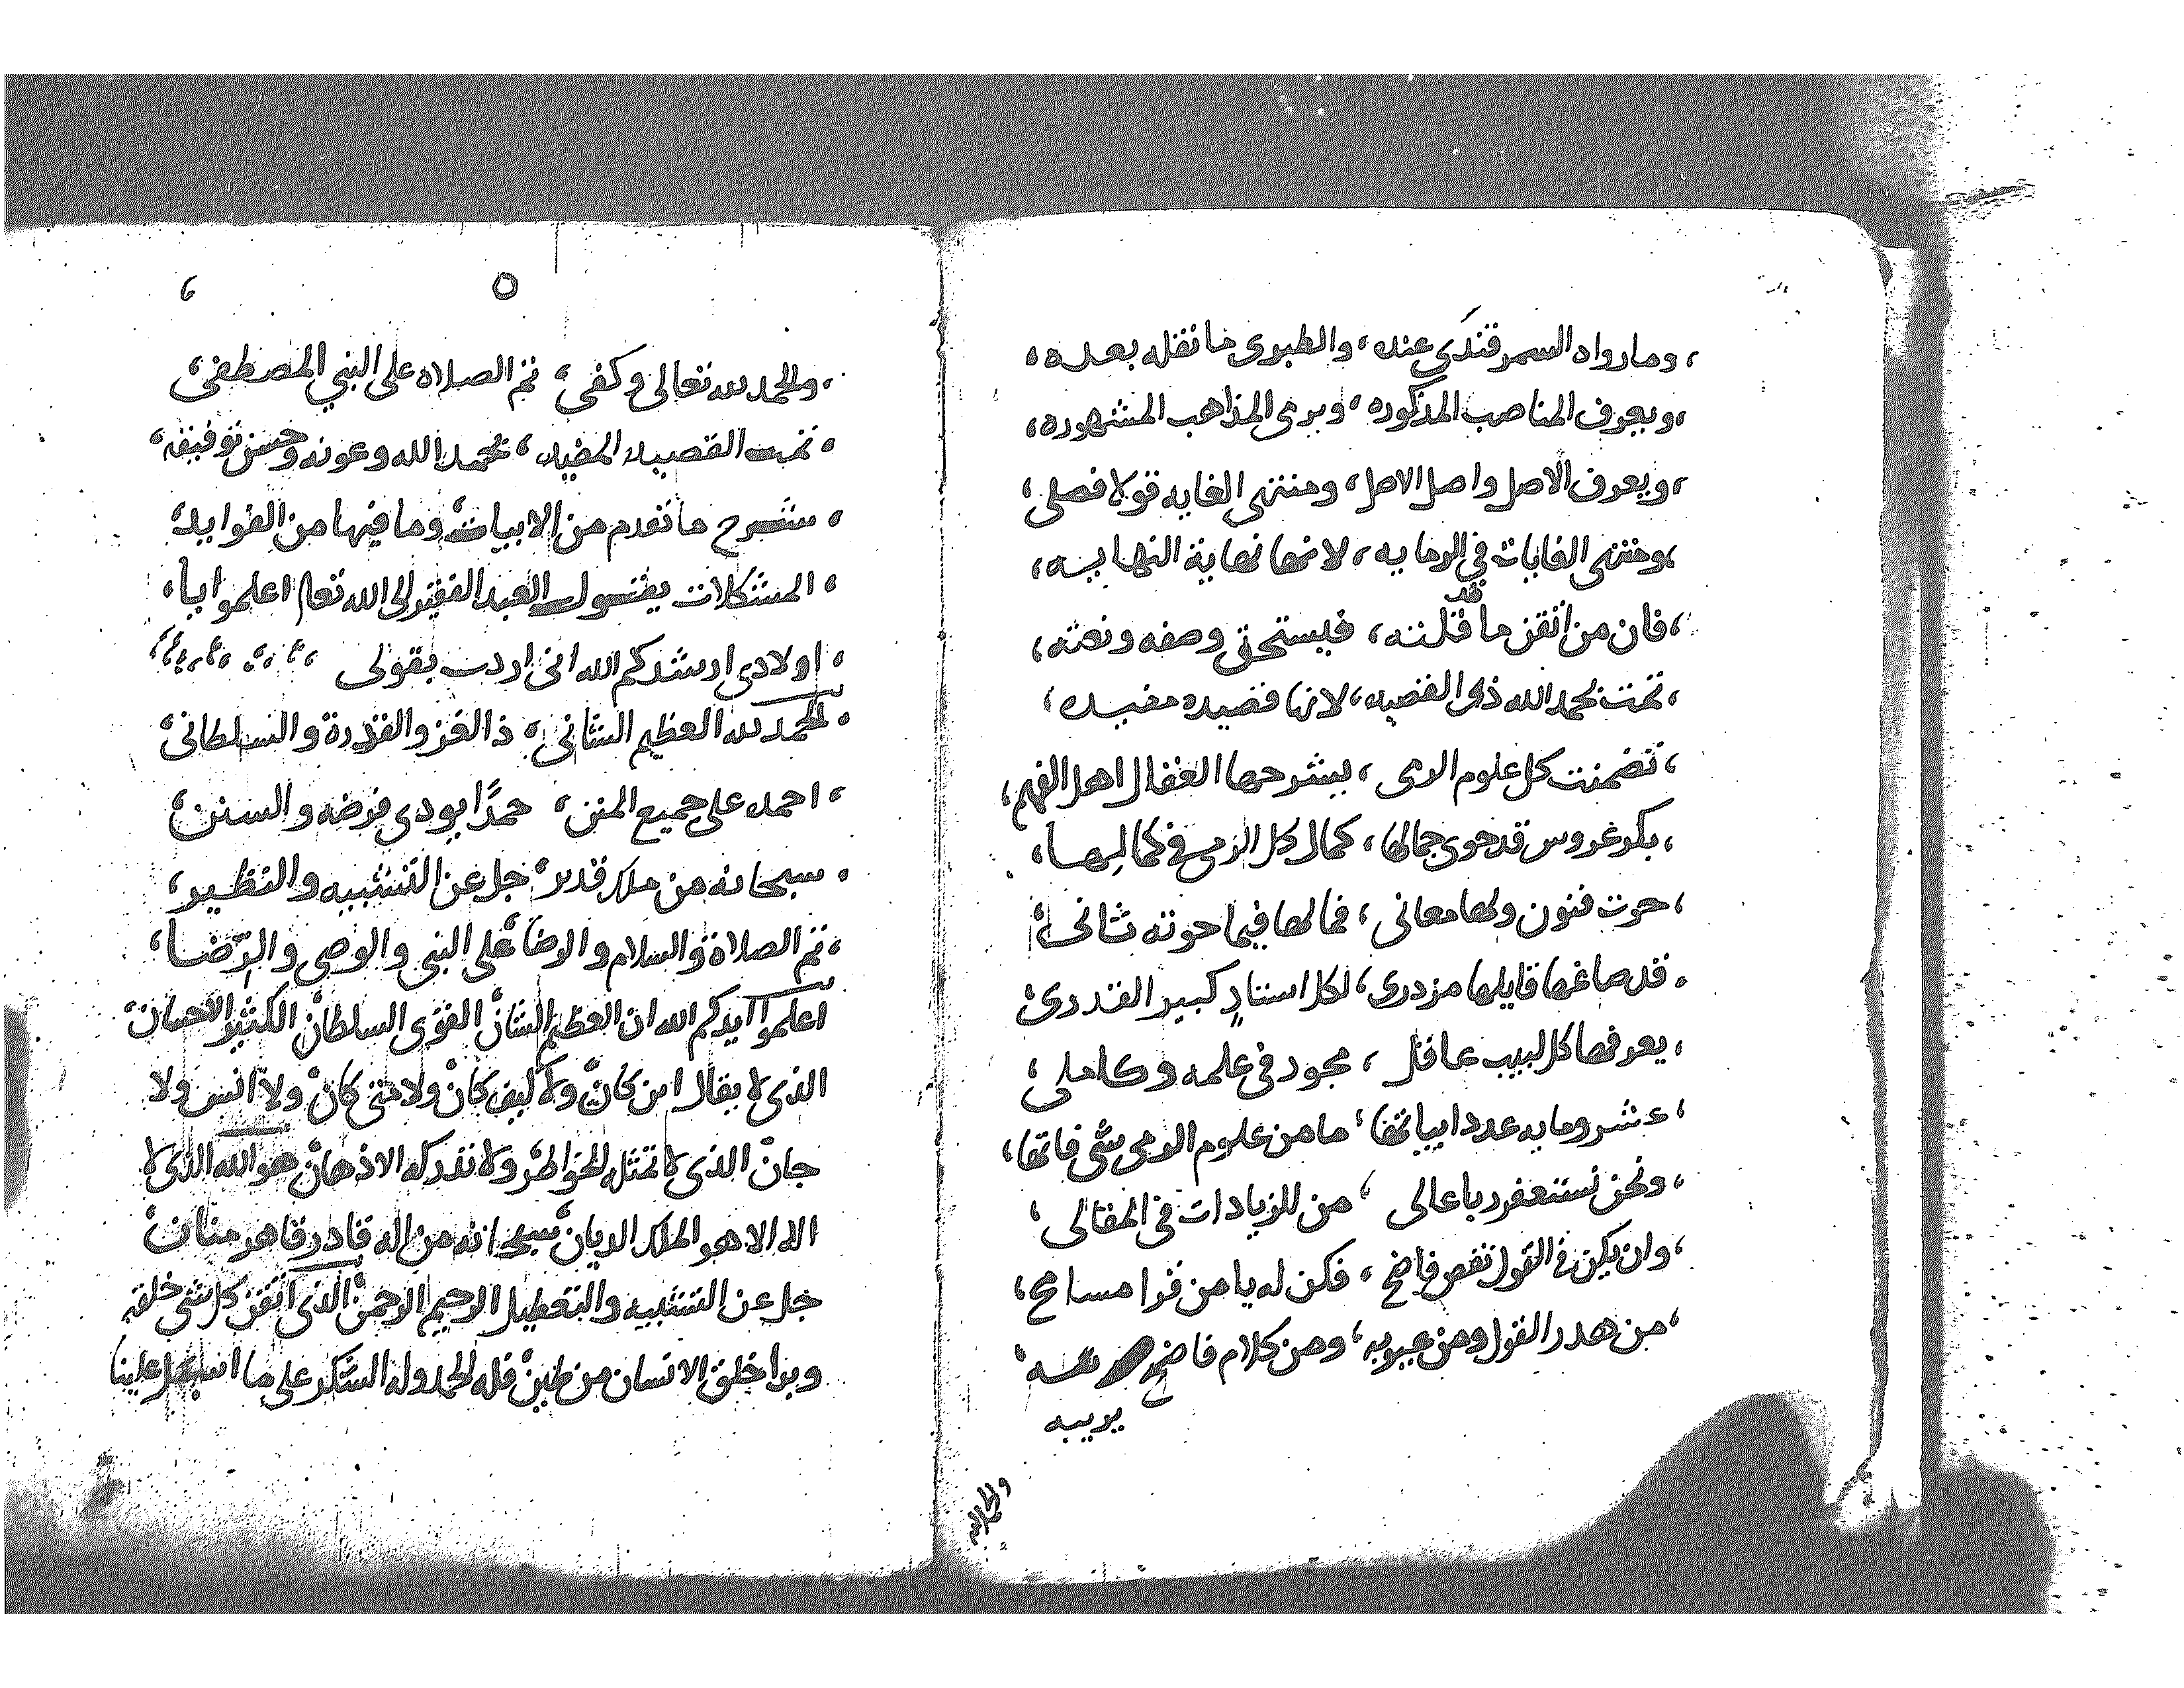 ، وما رواه السمرقندي عنده ، والطبري ما نقله بعده ،
، ويعرف المناصب المذكوره ، ويرمى المذاهب المشهوره ،
، ويعرف الاصل واصل الاصل ، ومنتهى الغايه قولا فصلى ،
، ومنتهى الغايات في الرمايه ، لانها نهاية النهايه ،
، فان من اتقن ما قد قلته ، فيستحق وصفه ونعته ،
، تمت بحمد الله ذى القصيده ، لانها قصيده مفيده ،
، تضمنت كل علوم الرمى ، يشرحها العقال اهل الفهم ،
، بكر عروس قد حوى جمالها ، كمال كل الرمى في كمالها ،
، حوت فنون ولها معانى ، فما لها فيما حوته ثانى ،
، قد صاغها قايلها مزدرى ، لكل استاد كبير القدرى ،
، يعرفها كل لبيب عاقل ، مجود في علمه وكاملى ،
، عشر ومايه عدد ابياتها ، ما من علوم الرمى شى فاتها ،
، ونحن نستغفر ربا عالى ، من الزيادات في المقالى ،
، وان يكن في القول نقص فاضح ، فكن له يا من قرا مسامح ،
، من هدر القول ومن عيوبه ، ومن كلام فاضح
يريبه
والحمد لله
٥
، والحمد لله تعالى وكفى ، ثم الصلاه على النبي المصطفى ،
، تمت القصيده المفيده ، بحمد الله وعونه وحسن توفيقه ،
، شرح ما تقدم من الابيات وما فيها من الفوايد ،
، المشكلات يقول العبد الفقير الى الله تعالى اعلموا يا ،
، اولادى ارشدكم الله انى اردت بقولى
، الحمد لله العظيم الشانى ، ذا العز والقدرة والسلطانى
، احمده على جميع المنن ، حمدًا يودى فرضه والسنن ،
، سبحانه من ملك قدير ، جل عن التشبيه والنظير ،
، ثم الصلاة والسلام والرضا على النبى والوصى والرّضا ،
اعلموا ايدكم الله ان العظيم الشان القوى السلطان الكثير الاحسان
الذى لا يقال اين كان ولا كيف كان ولا متى كان ولا انس ولا
جان الذى لا تمثله الخواطر ولا تدركه الاذهان هو الله الذى لا
اله الا هو الملك الديان سبحانه من اله قادر قاهر منان
جل عن التشبيه والتعطيل الرحيم الرحمن الذى اتقن كل شى خلقه
وبدا خلق الانسان من طين فله الحمد وله الشكر على ما اسبل علينا